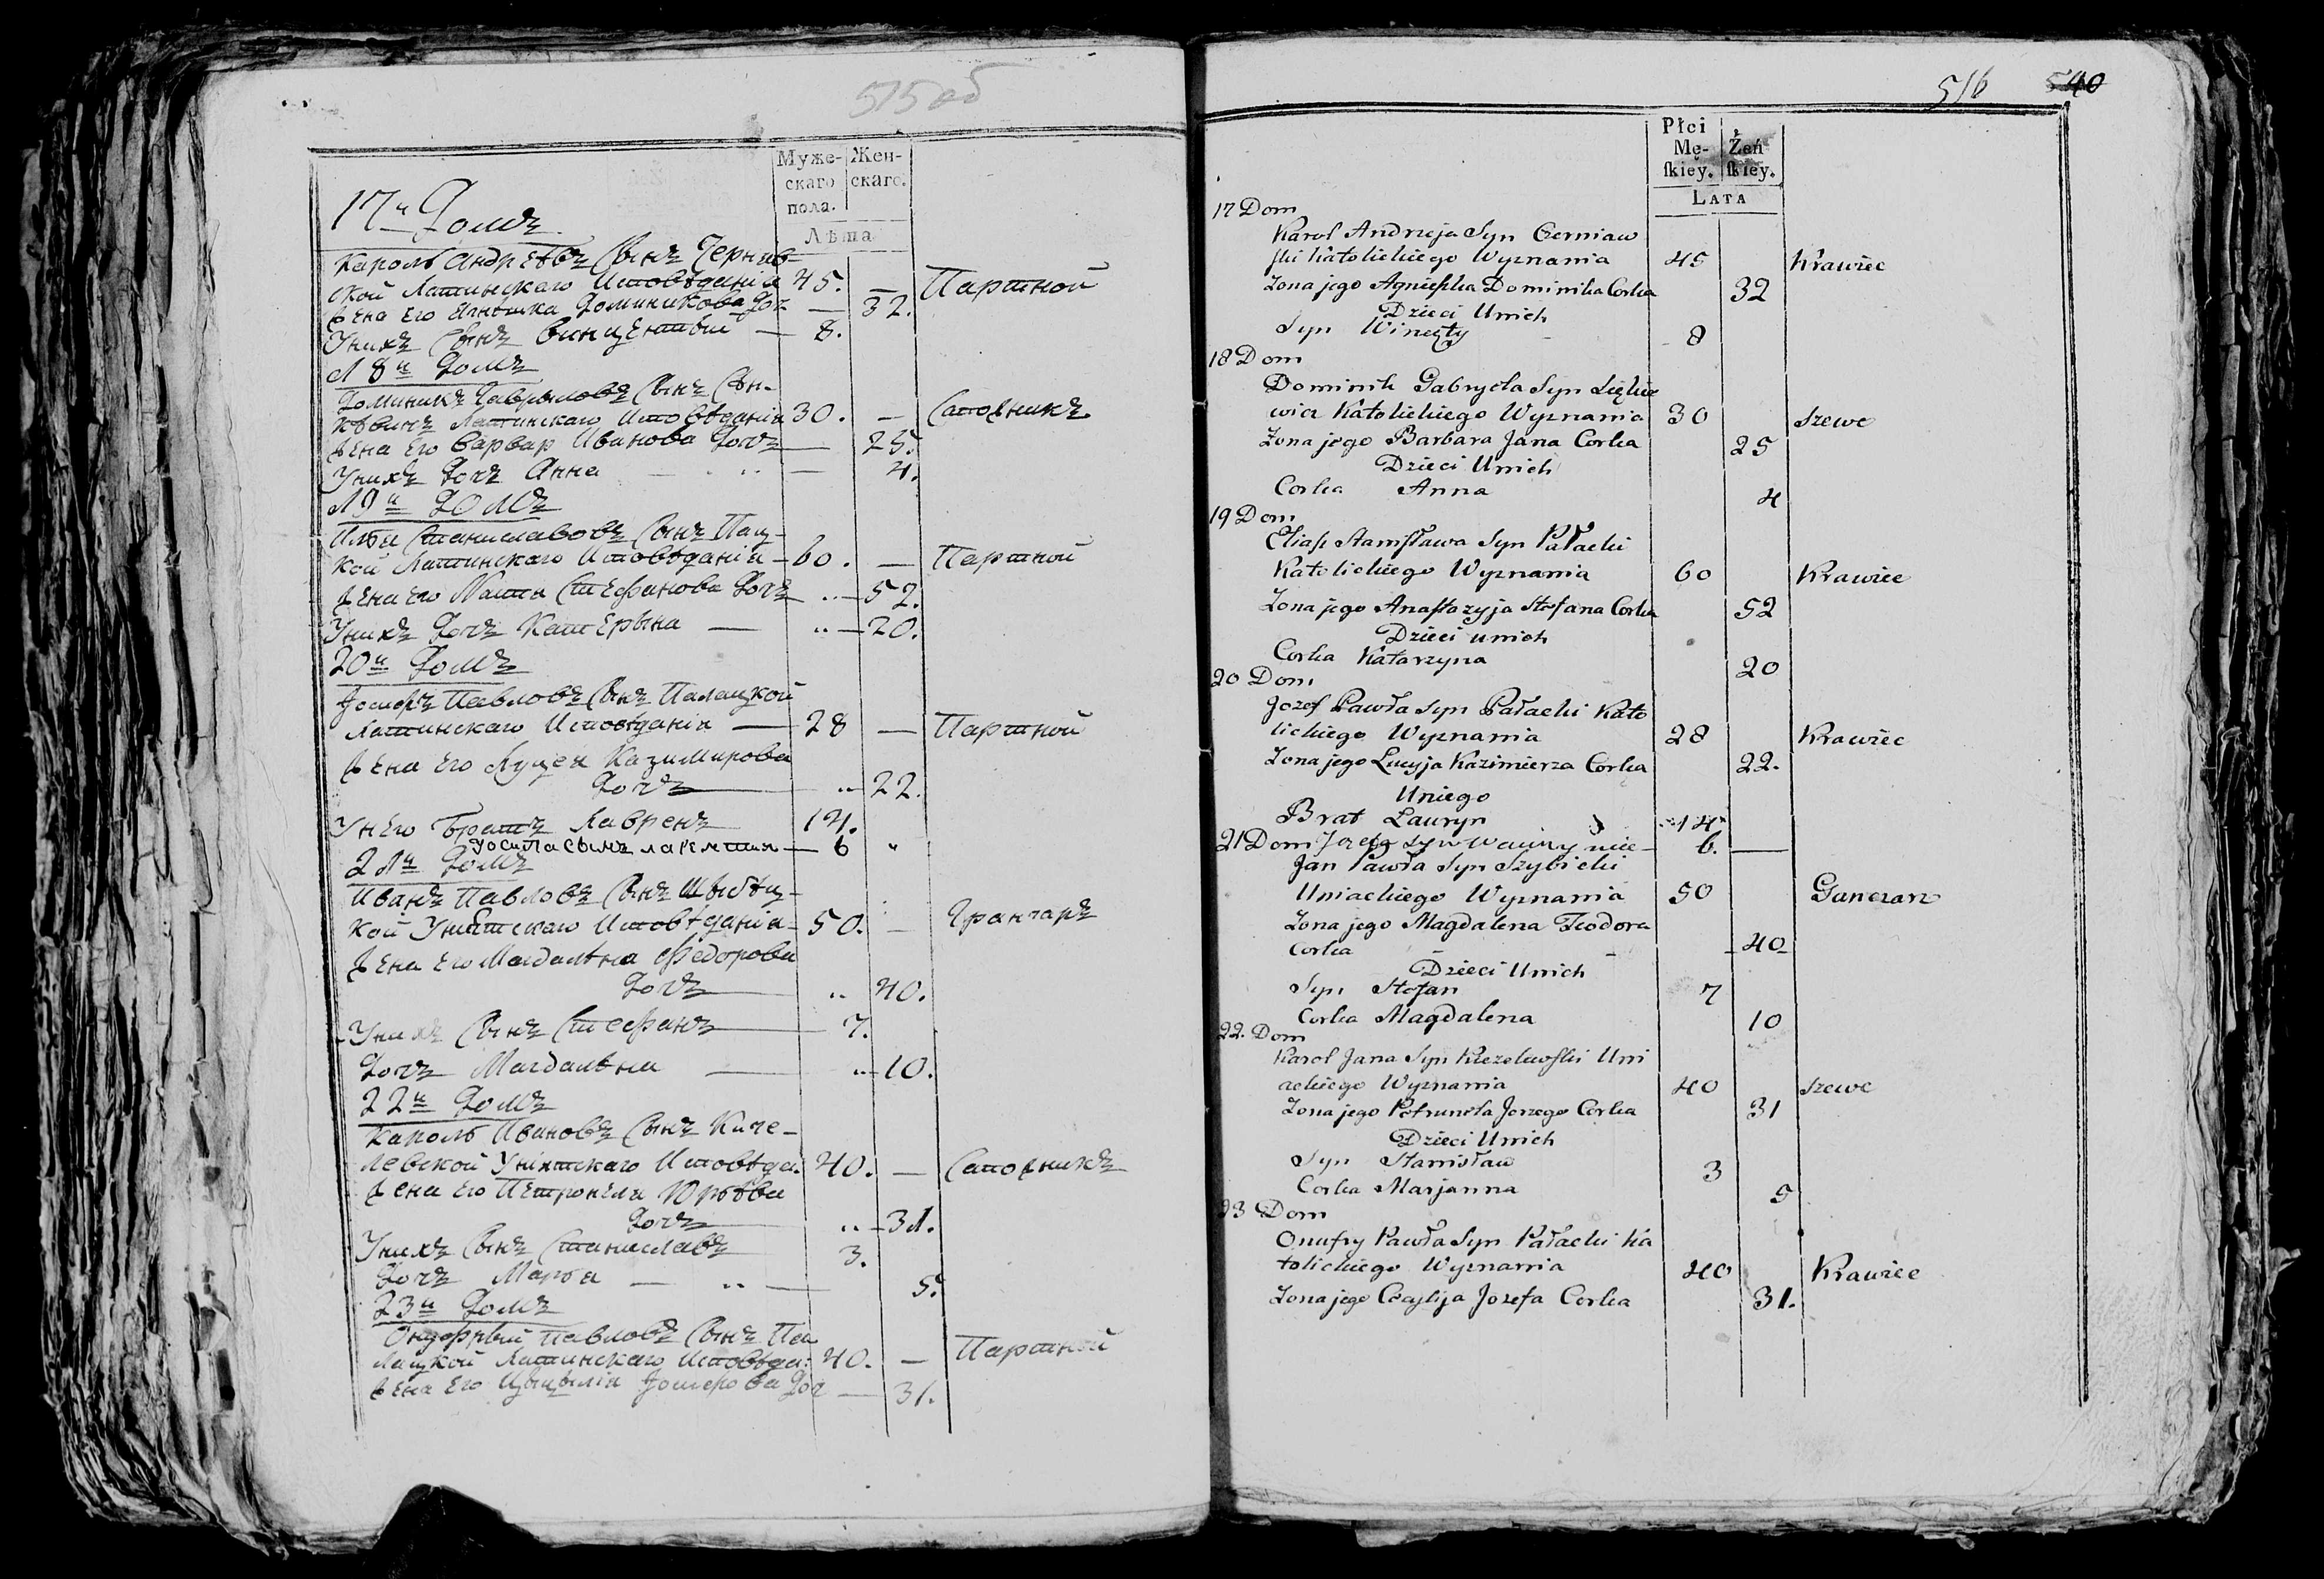 515 об
Муже-
скаго
пола.
Жен-
скаго.
Лѣта
17й Домъ
Кароль Андрѣевъ Сынъ Черняв
ской Латинскаго Исповѣданія 45. — Партной
Жена Его Агнѣшка Доминикова Доч — 32.
Унихъ Сынъ Винцентый — 8.
18й Домъ
Доминикъ Гаврыловъ Сынъ
Латинскаго Исповѣданія 30. — Сапожникъ
Жена Его Варвар Иванова Дочъ — 25.
Унихъ Дочъ Анна — 4.
19й Домъ
Илья Станиславовъ Сынъ Пац-
кой Латинскаго Исповѣданія — 60. — Партной
Жена Его Наста Стефанова Дочъ — 52.
Унихъ Дочъ Катерына — 20.
20й Домъ
Іосифъ Павловъ Сынъ Палацкой
Латинскаго Исповѣданія — 28 — Партной
Жена Его Луцея Казимирова
Дочъ — 22.
Унего Братъ Лавренъ 14.
Іосипа сынъ — 6 "
21й Домъ
Иванъ Павловъ Сынъ Шыбѣц-
кой Уніятскаго Исповѣданія — 50. — Гранчаръ
Жена Его Магдалѣна Федорова
Дочъ — 40.
Унихъ Сынъ Стефанъ — 7.
Дочъ Магдалѣна — 10.
22й Домъ
Кароль Ивановъ Сынъ Киче-
левской Уніятскаго Исповѣда: 40. — Сапожникъ
Жена Его Петронеля Юрьѣва
Дочъ — 31.
Унихъ Сынъ Станиславъ 3.
Дочъ Марья — 5.
23й Домъ
Онуфрый Павловъ Сынъ Па
лацкой Латинскаго Исповѣда: 40. — Партной
Жена Его Цыцылія Іосифова Доч — 31.
516 540
Płci
Mę-
ſkiey.
Żeń
ſkiey.
LATA
17 Dom
Karol Andrzeja Syn Czerniaw
ſki Katolickiego Wyznania 45 Krawiec
Zona jego Agnieſzka Dominika Corka 32
Dzieci Unich
Syn Wincęty 8
18 Dom
Dominik Gabryela Syn
wicz Katolickiego Wyznania 30 Szewc
Zona jego Barbara Jana Corka 25
Dzieci Unich
Corka Anna 4
19 Dom
Eliaſz Staniſława Syn Pałacki
Katolickiego Wyznania 60 Krawiec
Zona jego Anaſtazyja Stefana Corka 52
Dzieci unich
Corka Katarzyna 20
20 Dom
Jozef Pawła Syn Pałacki Kato
lickiego Wyznania 28 Krawiec
Zona jego Lucyja Kazimierza Corka 22.
Uniego
Brat Lauryn 14
21 Dom Jozefa syn Wawrzyniec — 6. —
Jan Pawła Syn Szybicki
Uniackiego Wyznania 50 Ganczarz
Zona jego Magdalena Teodora
Corka 40
Dzieci Unich
Syn Stefan 7
Corka Magdalena 10
22. Dom
Karol Jana Syn Kiczelewſki Uni
ackiego Wyznania 40 Szewc
Zona jego Petrunela Jerzego Corka 31
Dzieci Unich
Syn Stanisław 3
Corka Marjanna 5
23 Dom
Onufry Pawła Syn Pałacki Ka
tolickiego Wyznania 40 Krawiec
Zona jego Cecylija Jozefa Corka 31.